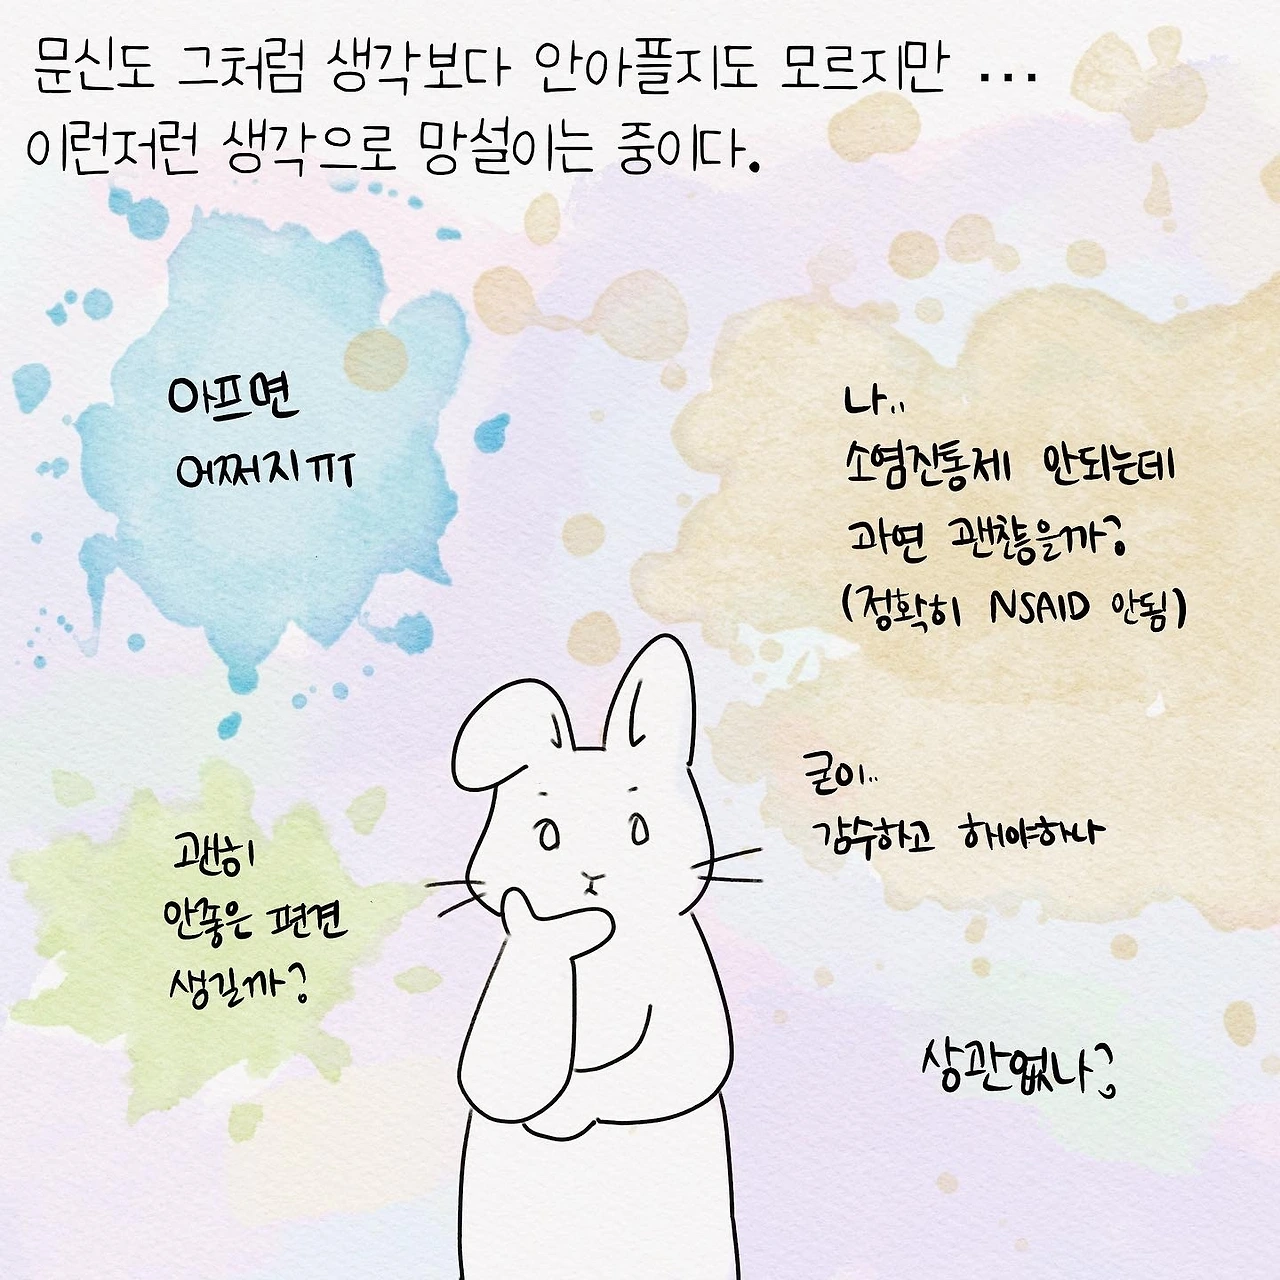 문신도 그처럼 생각보다 안아플지도 모르지만 ...
이런저런 생각으로 망설이는 중이다.
아프면
어쩌지ㅠㅜ
나..
소염진통제 안되는데
과연 괜찮을까?
(정확히 NSAID 안됨)
굳이..
감수하고 해야하나
괜히
안좋은 편견
생길까?
상관없나?